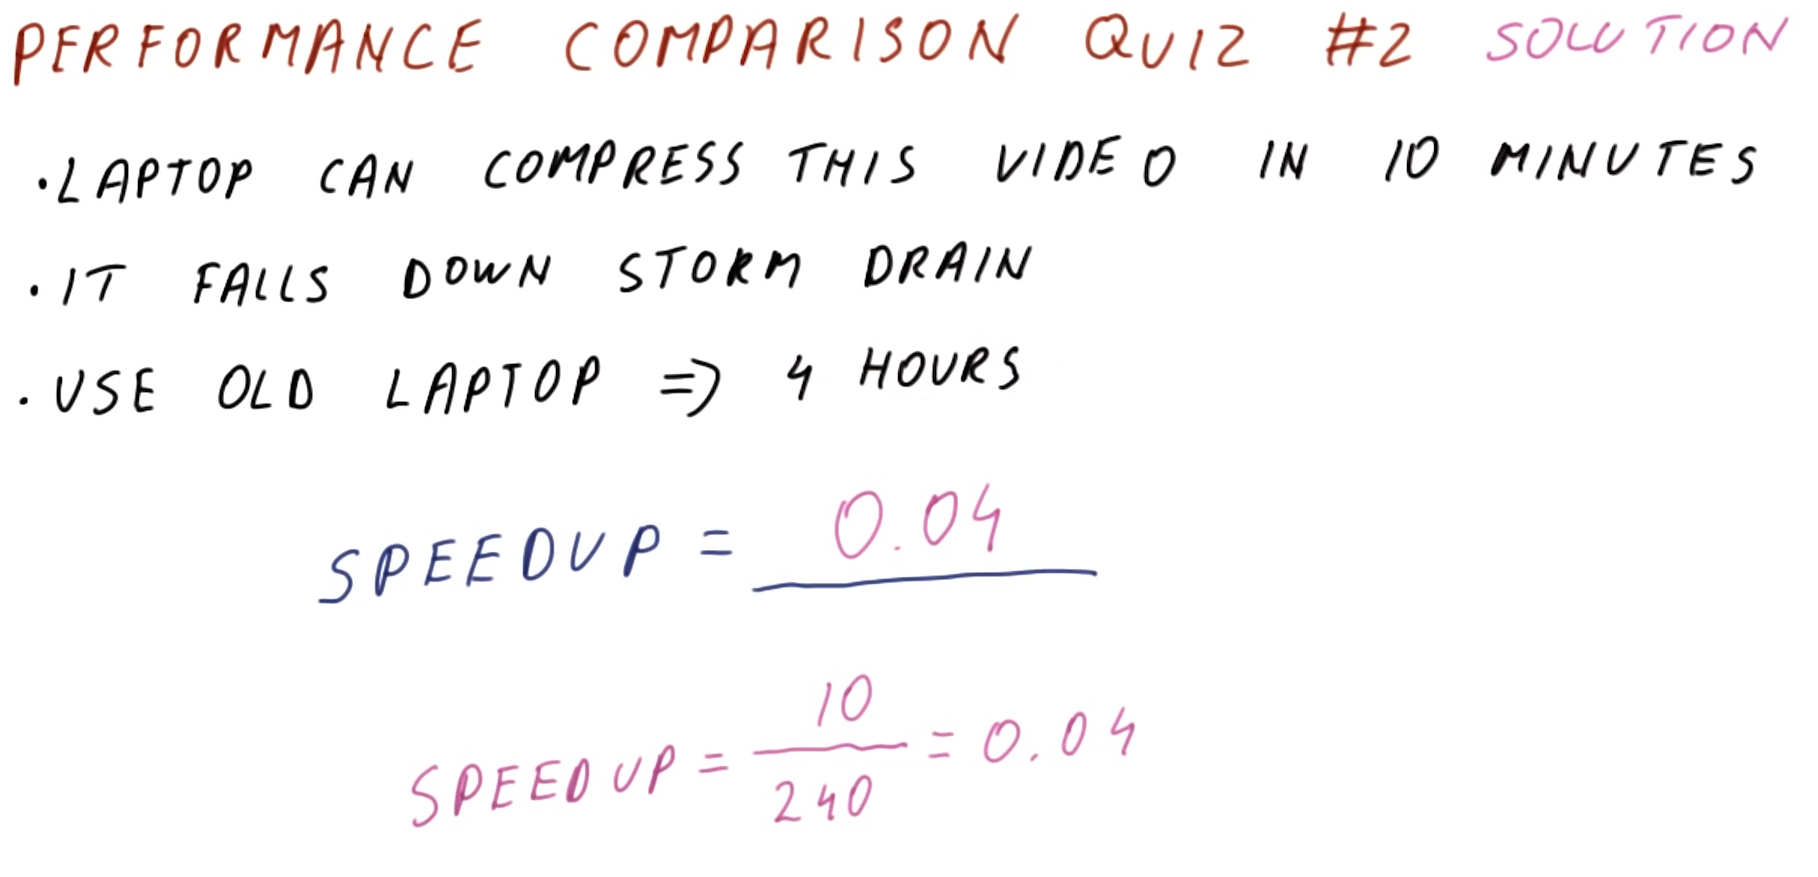 PERFORMANCE COMPARISON QUIZ #2 SOLUTION
• LAPTOP CAN COMPRESS THIS VIDEO IN 10 MINUTES
• IT FALLS DOWN STORM DRAIN
• USE OLD LAPTOP => 4 HOURS
SPEEDUP = 0.04
SPEEDUP = 10/240 = 0.04